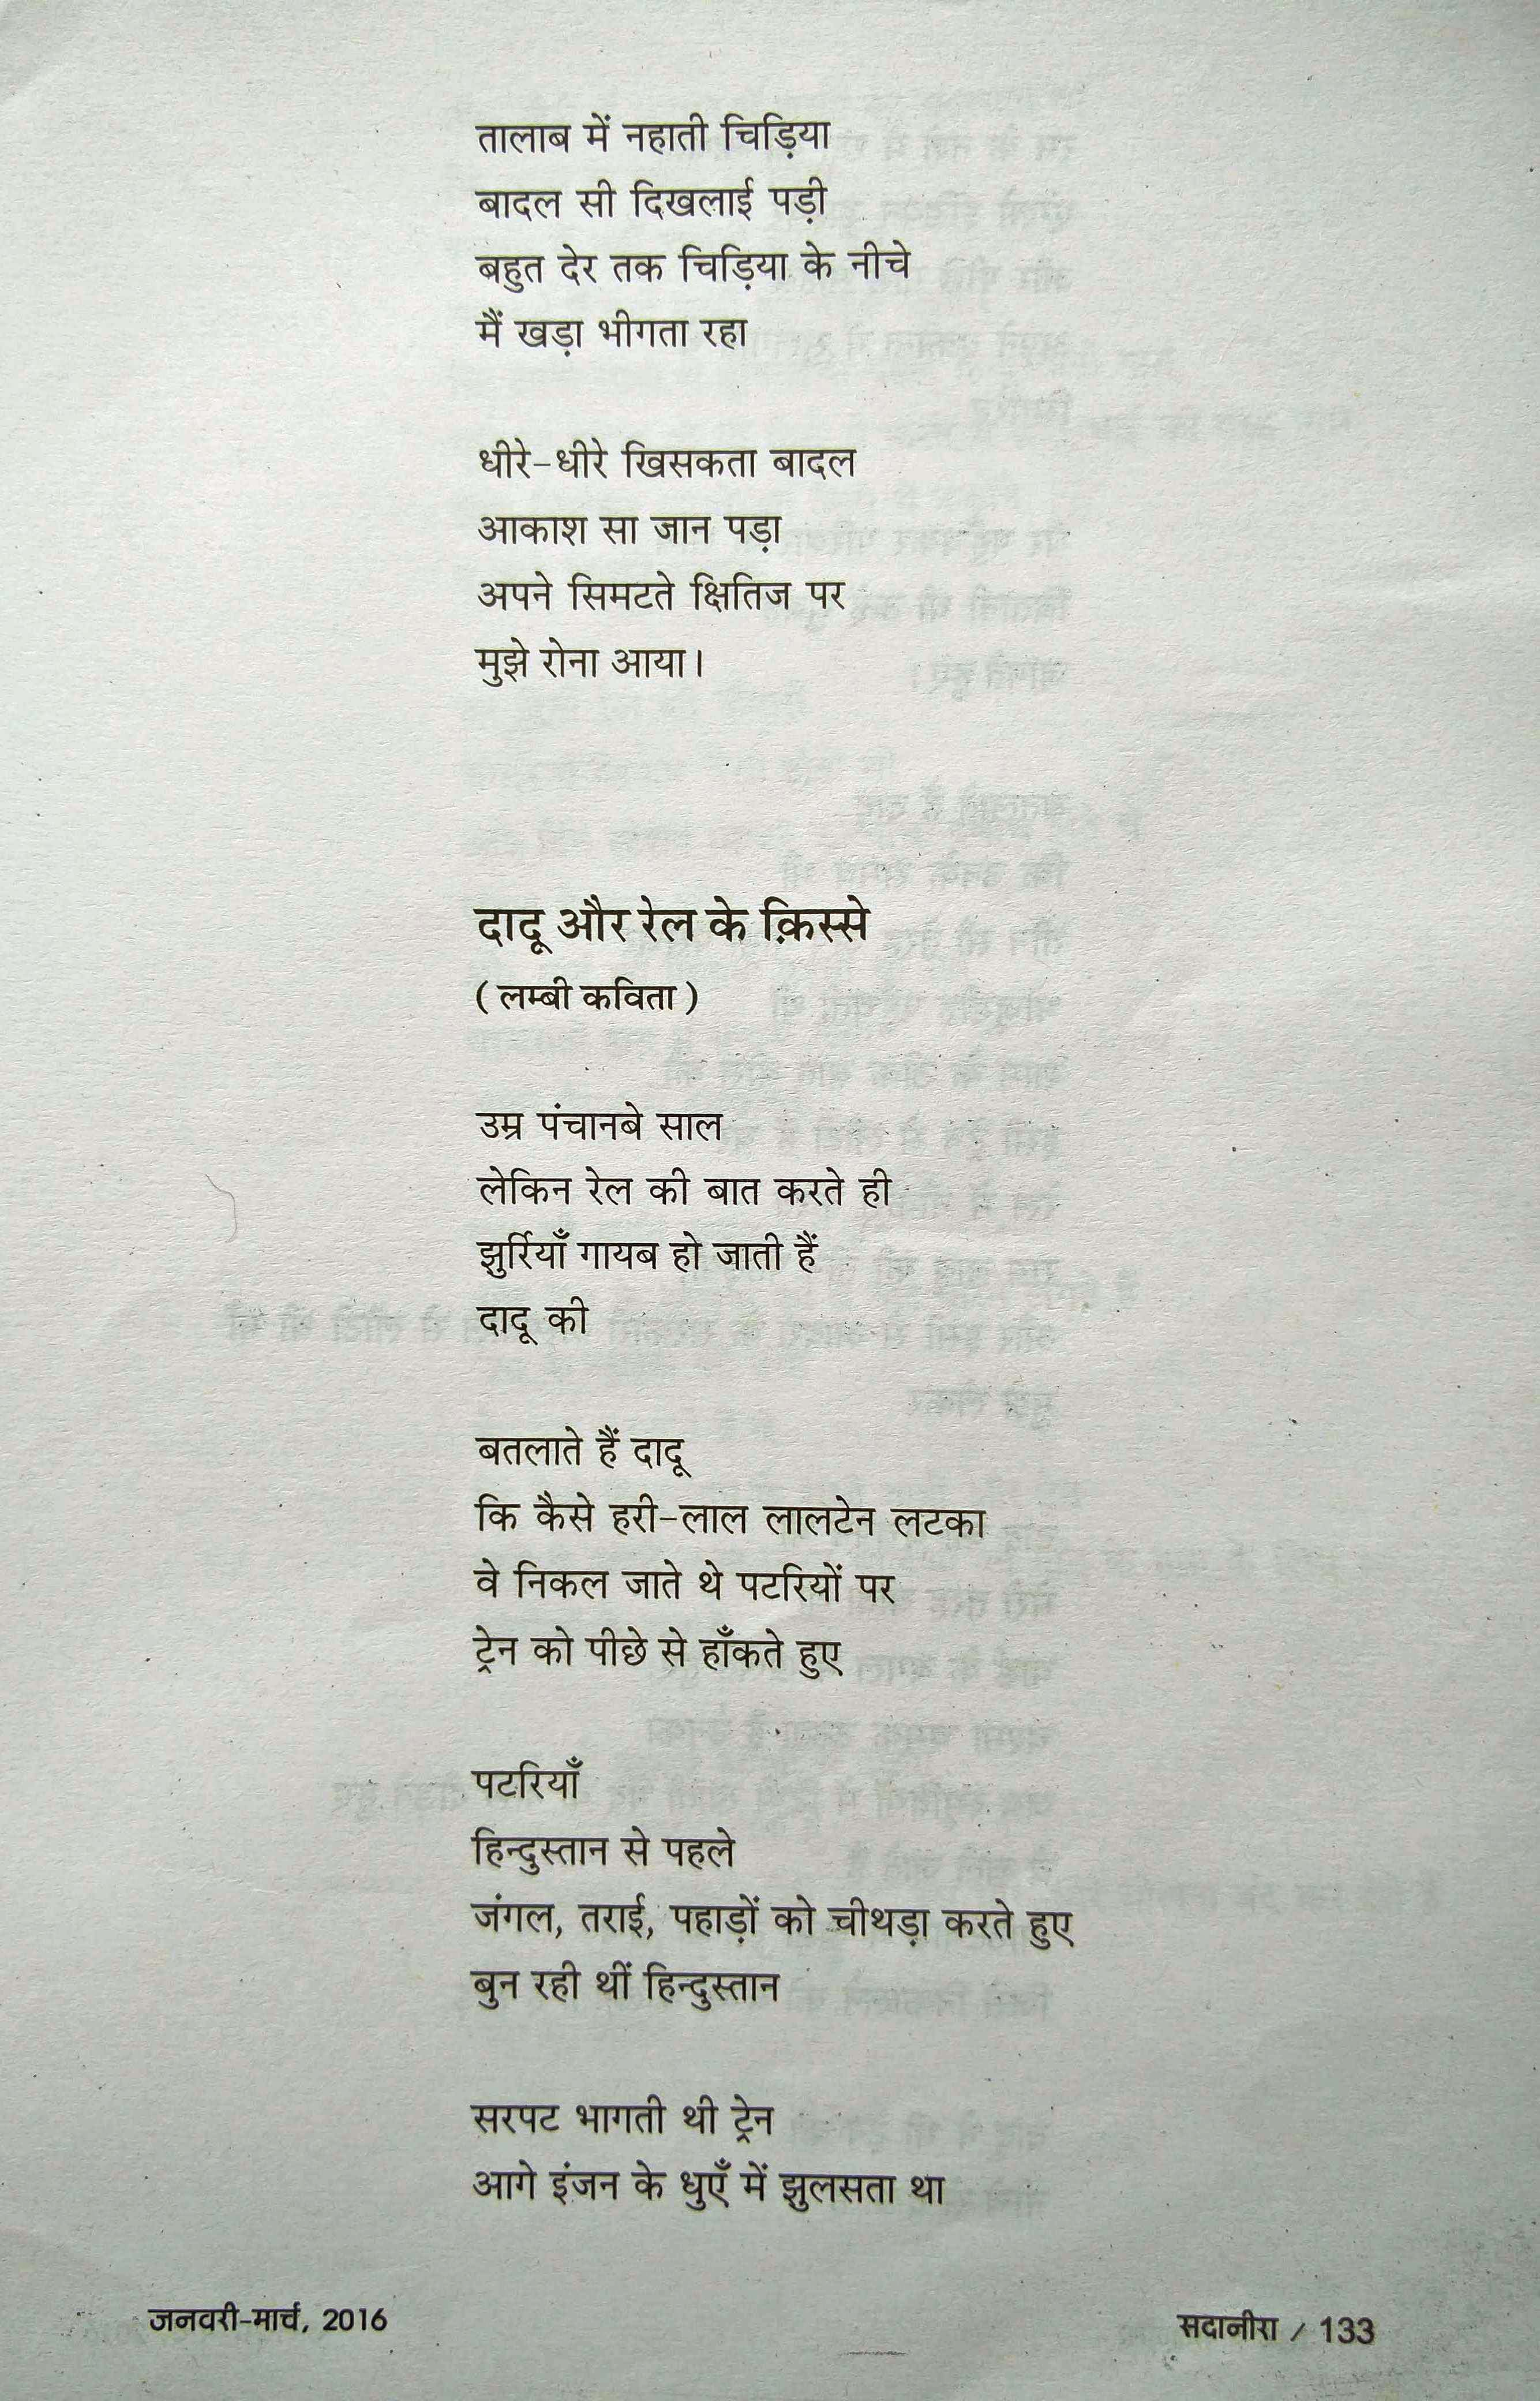 तालाब में नहाती चिड़िया
बादल सी दिखलाई पड़ी
बहुत देर तक चिड़िया के नीचे
मैं खड़ा भीगता रहा
धीरे-धीरे खिसकता बादल
आकाश सा जान पड़ा
अपने सिमटते क्षितिज पर
मुझे रोना आया।
दादू और रेल के क़िस्से
(लम्बी कविता)
उम्र पंचानबे साल
लेकिन रेल की बात करते ही
झुर्रियाँ गायब हो जाती हैं
दादू की
बतलाते हैं दादू
कि कैसे हरी-लाल लालटेन लटका
वे निकल जाते थे पटरियों पर
ट्रेन को पीछे से हाँकते हुए
पटरियाँ
हिन्दुस्तान से पहले
जंगल, तराई, पहाड़ों को चीथड़ा करते हुए
बुन रही थीं हिन्दुस्तान
सरपट भागती थी ट्रेन
आगे इंजन के धुएँ में झुलसता था
जनवरी-मार्च, 2016
सदानीरा / 133